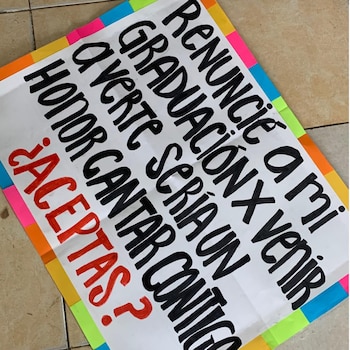 RENUNCIÉ a mi
GRADUACIÓN X VENIR
a VERTE SERÍA UN
HONOR CANTAR CONTIGO
¿ACEPTAS?